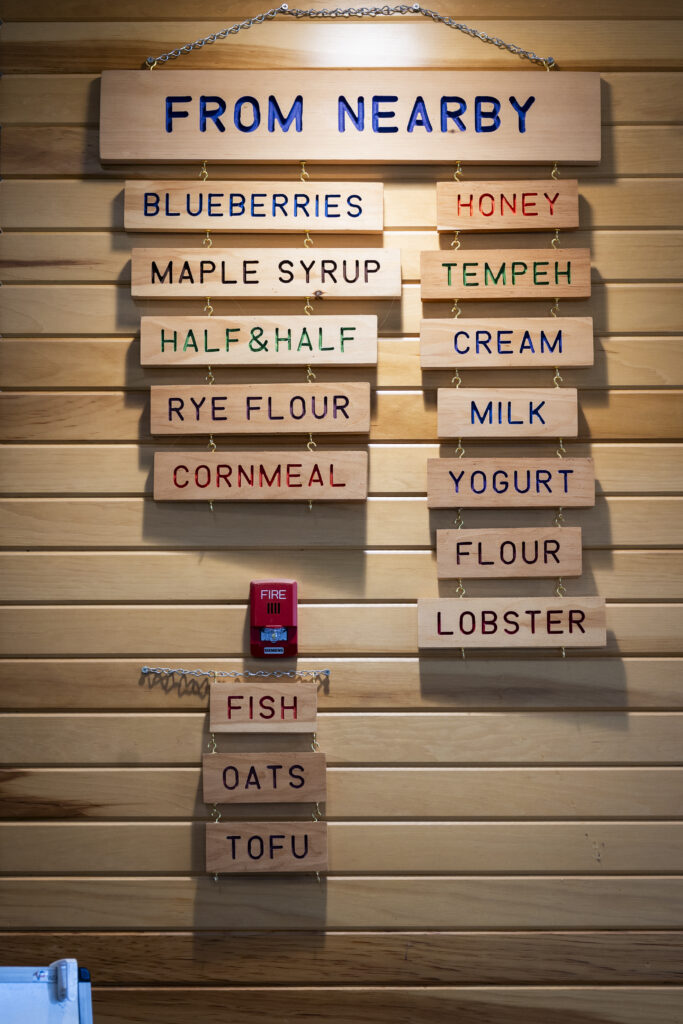 FROM NEARBY
BLUEBERRIES
MAPLE SYRUP
HALF&HALF
RYE FLOUR
CORNMEAL
HONEY
TEMPEH
CREAM
MILK
YOGURT
FLOUR
LOBSTER
FIRE
SIEMENS
FISH
OATS
TOFU